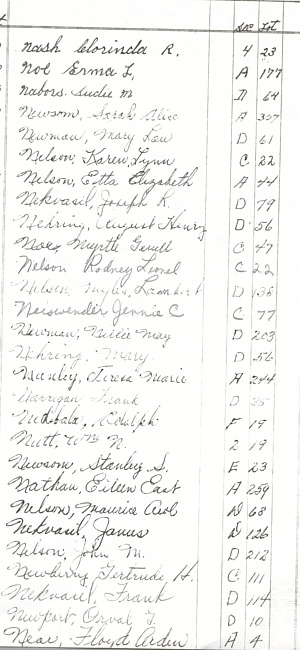 Sec Lot
Nash Clorinda R. 4 23
Noe Erma L. A 177
Nabors Sudie M D 64
Newsom, Sarah Alice A 307
Newman, Mary Lou D 61
Nelson, Karen Lynn C 22
Nelson, Etta Elizabeth A 44
Nekvasil, Joseph K. D 79
Nehring, August Henry D 56
Noe, Myrtle C 47
Nelson Rodney Lionel C 22
Nelson, Myles Lambert D 138
Neiswender Jennie C C 77
Newman, Nellie May D 203
Nehring, Mary D 56
Teresa Marie A 244
Frank D 35
Adolph F 19
Nutt, Wm N. 2 19
Newsom, Stanley S. E 23
Nathan, Eileen East A 259
Nelson, Maurice D 68
Nekvasil, James D 126
Nelson, John M. D 212
Newberry Gertrude H. C 111
Nekvasil, Frank D 114
Newport, Orval T. D 10
Near, Floyd Arden A 4